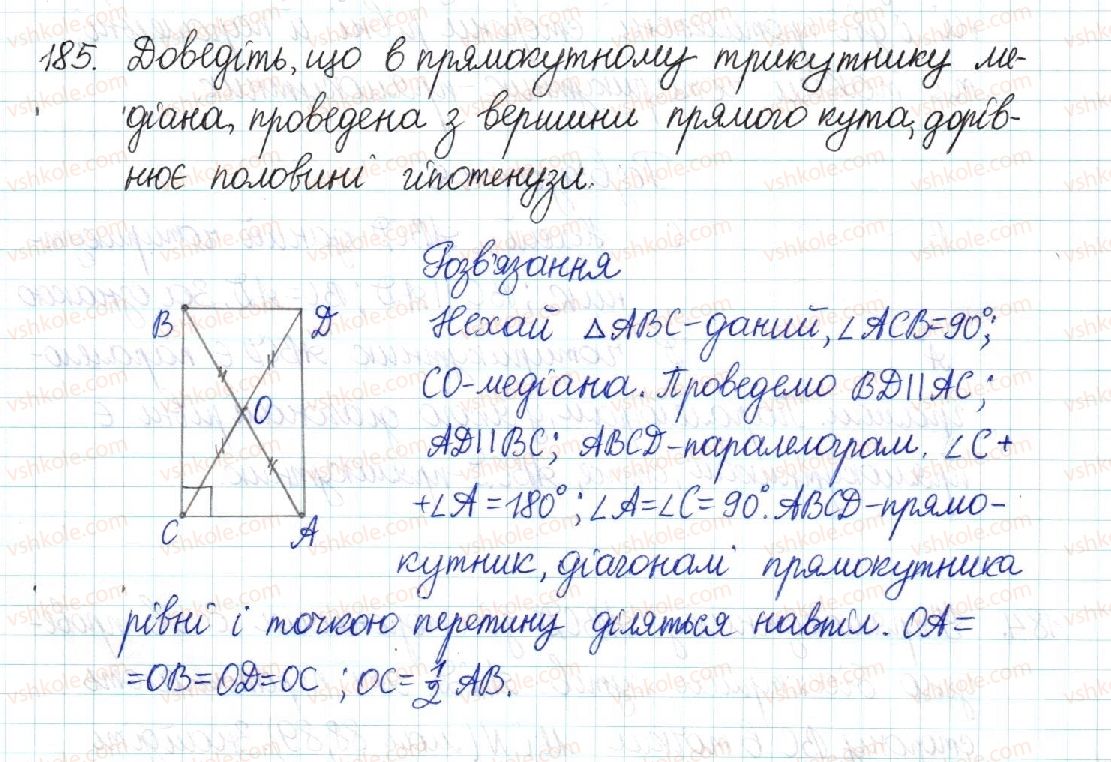 185. Доведіть, що в прямокутному трикутнику ме-
діана, проведена з вершини прямого кута, дорів-
нює половині гіпотенузи.
Розв'язання
B D
Нехай △ABC-даний, ∠ACB=90°;
CO-медіана. Проведемо BD||AC;
O
AD||BC; ABCD-паралелограм. ∠C+
+∠A=180°; ∠A=∠C=90°. ABCD-прямо-
C A
кутник, діагоналі прямокутника
рівні і точкою перетину діляться навпіл. OA=
=OB=OD=OC; OC=1/2 AB.
vshkole.com